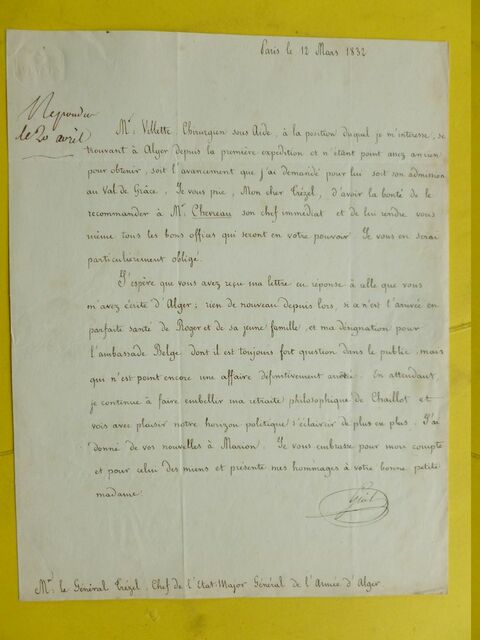 Paris le 12 Mars 1832
Repondu
le 20 avril
Mr. Villette Chirurgien sous Aide, à la position duquel je m'interesse, se
trouvant à Alger depuis la première expédition et n'étant point assez ancien
pour obtenir, soit l'avancement que j'ai demandé pour lui soit son admission
au Val de Grâce. Je vous prie, Mon cher Trézel, d'avoir la bonté de le
recommander à Mr. Chevreau son chef immédiat et de lui rendre vous
même tous les bons offices qui seront en votre pouvoir. Je vous en serai
particulièrement obligé.
J'espère que vous avez reçu ma lettre en réponse à celle que vous
m'avez écrite d'Alger; rien de nouveau depuis lors, si ce n'est l'arrivée en
parfaite santé de Roger et de sa jeune famille et ma désignation pour
l'ambassade Belge dont il est toujours fort question dans le public, mais
qui n'est point encore une affaire définitivement arrêtée. En attendant,
je continue à faire embellir ma retraite philosophique de Chaillot et
vois avec plaisir notre horizon politique s'éclaircir de plus en plus. J'ai
donné de vos nouvelles à Marion. Je vous embrasse pour mon compte
et pour celui des miens et présente mes hommages à votre bonne petite
madame.
Mr. le Général Trézel, Chef de l'Etat-Major Général de l'Armée d'Alger